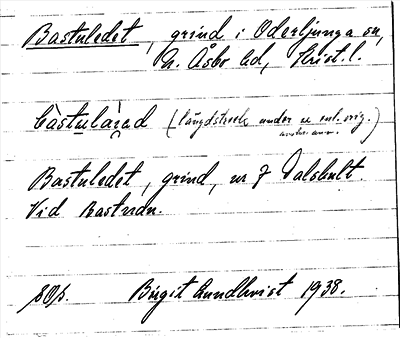 Bastuledet, grind i Oderljunga sn,
N. Åsbo hd, Krist. l.
bàstulàːed (längdstreck under u enl. orig.
Bastuledet, grind, nr 7 Dalshult.
Vid Bastudn.
SOp. Birgit Lundkvist 1938.